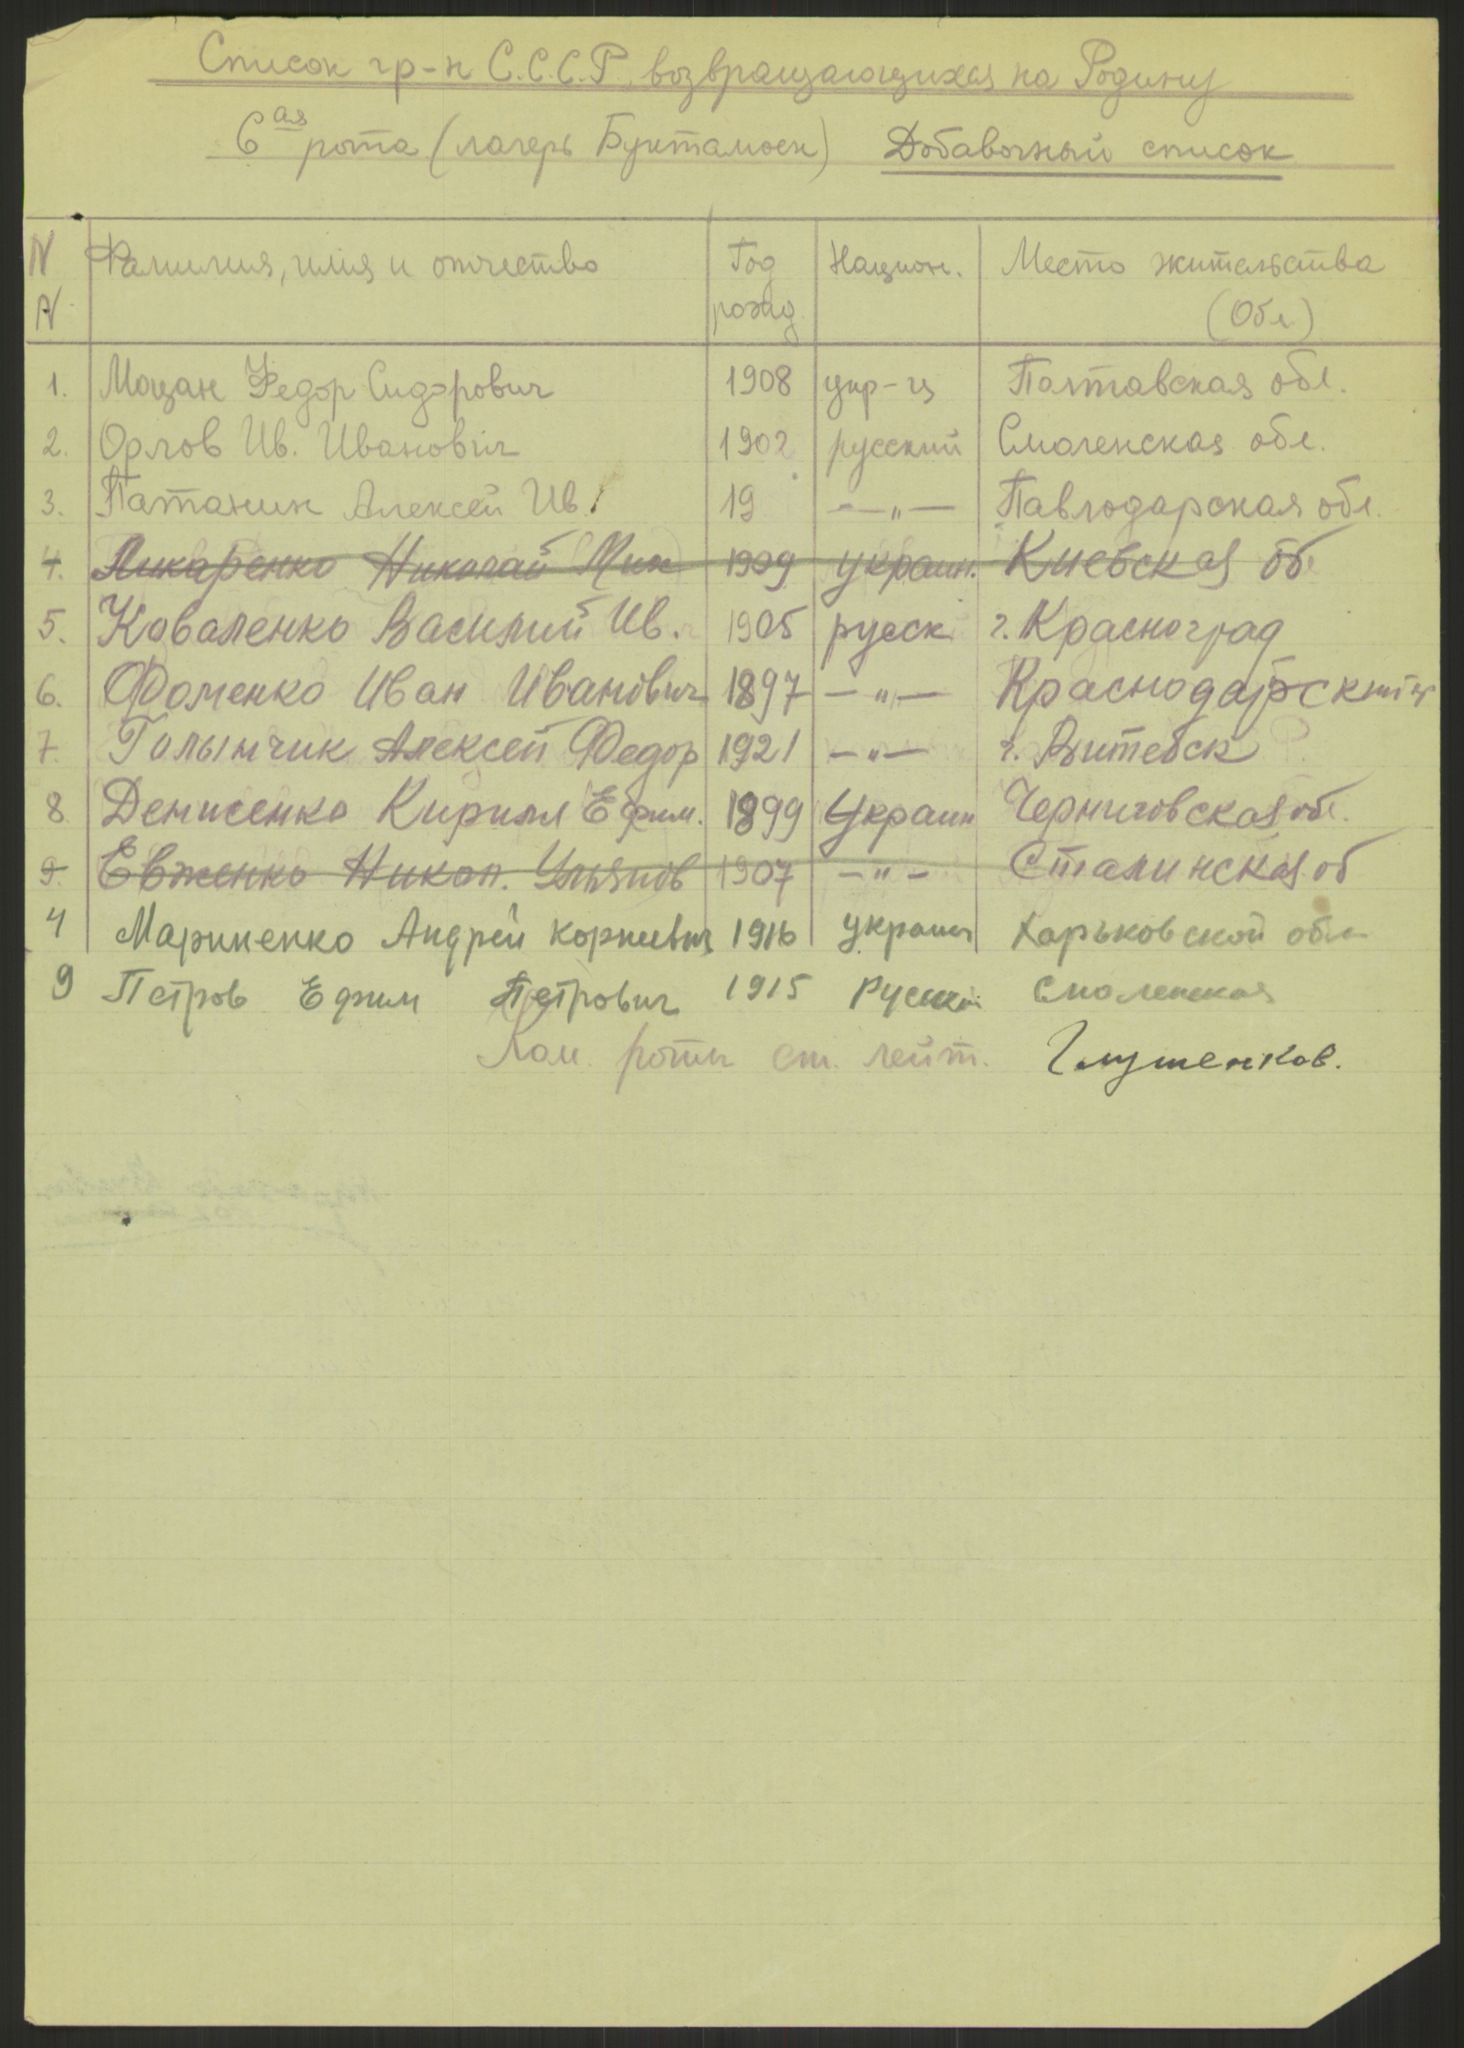 Список гр-н С.С.С.Р., возвращающихся на Родину
6ая рота (лагерь Буктамоен) Добавочный список
N Фамилия, имя и отчество Год Национ. Место жительства
N рожд. (Обл.)
1. Моцан Федор Сидорович 1908 укр-ц Полтавская обл.
2. Орлов Ив. Иванович 1902 русский Смоленская обл.
3. Патанин Алексей Ив. 19 —„— Павлодарская обл.
4. Ликаренко Николай Мих 1909 украин. Киевская об
5. Коваленко Василий Ив. 1905 русск г. Красноград
6. Фоменко Иван Иванович 1897 —„— Краснодарский
7. Голынчик Алексей Федор 1921 —„— г. Витебск
8 Денисенко Кирилл Ефим. 1899 Украин Черниговская обл.
9. Евженко Никол. Ульянов 1907 —„— Сталинская об
4 Мариненко Андрей Корнеевич 1916 украин Харьковской обл
9 Петров Ефим Петрович 1915 Русский Смоленская
Ком роты ст. лейт. Глушенков.